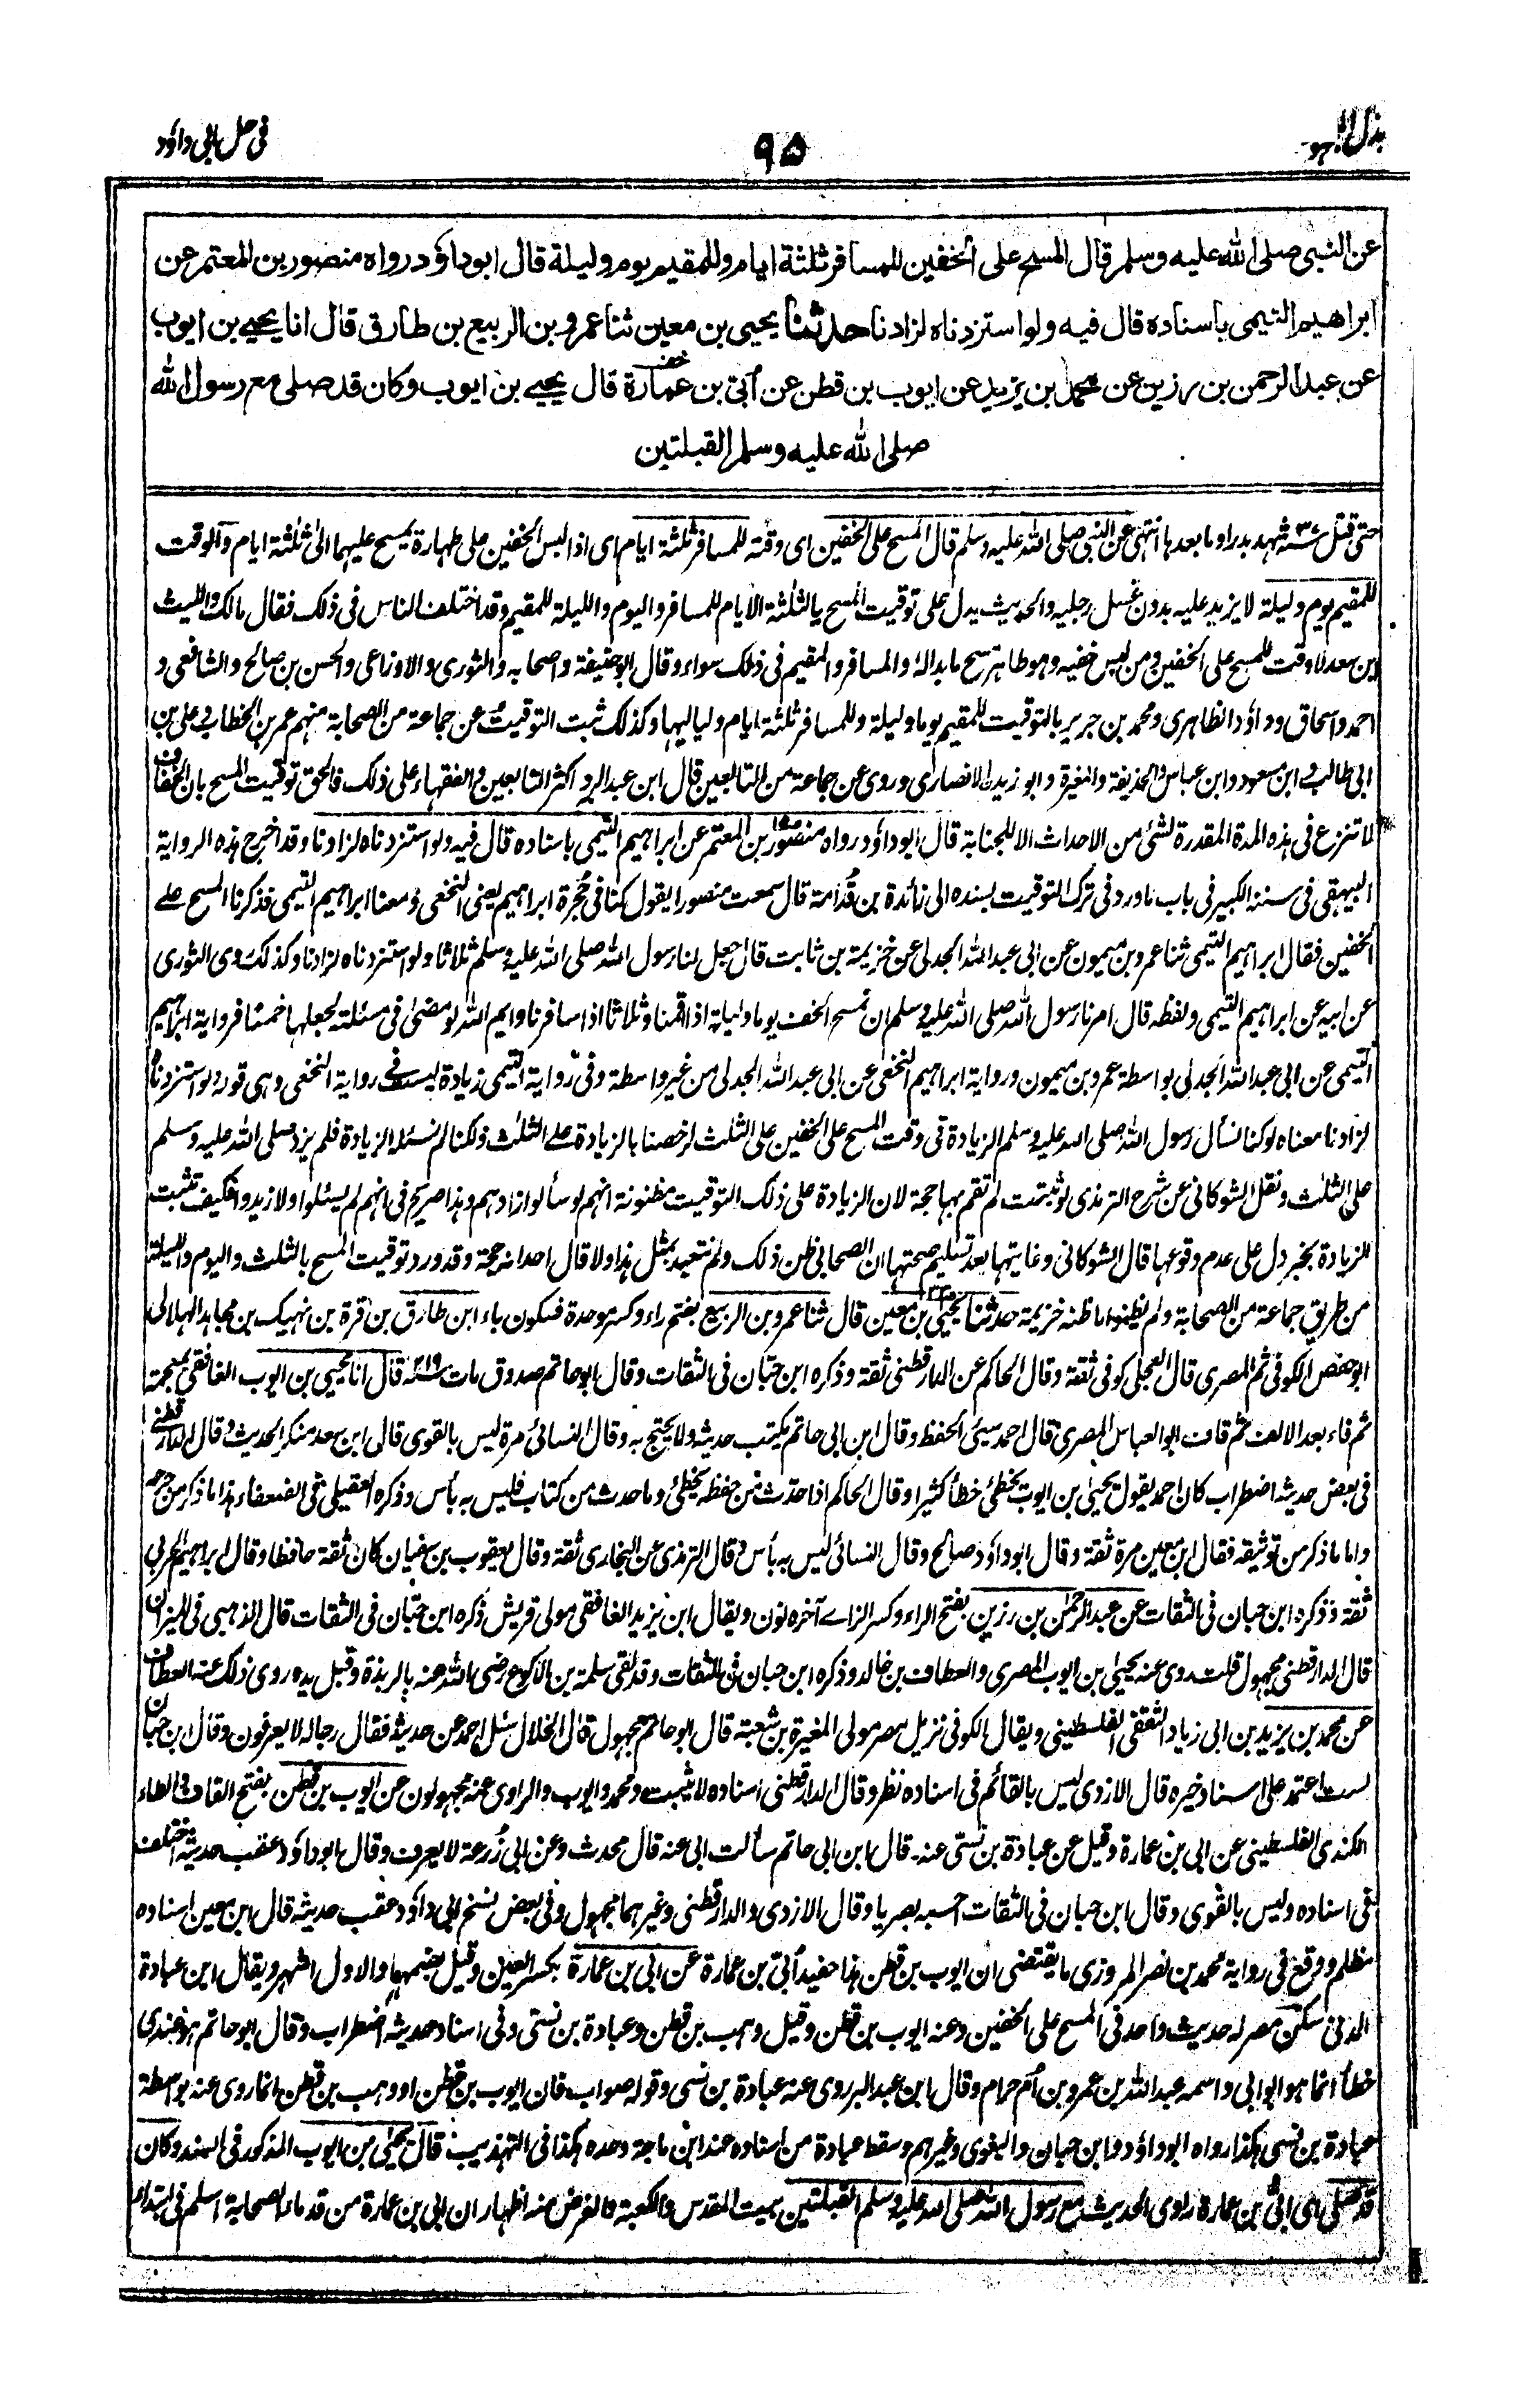 بذل المجهود
٩٥
فى حل ابى داؤد
عن النبى صلى الله عليه وسلم قال المسح على الخفين للمسافر ثلثة ايام وللمقيم يوم وليلة قال ابو داؤد رواه منصور بن المعتمر عن
ابراهيم التيمى باسناده قال فيه ولو استزدناه لزادنا حدثنا يحيى بن معين ثنا عمرو بن الربيع بن طارق قال انا يحيى بن ايوب
عن عبد الرحمن بن رزين عن محمد بن يزيد عن ايوب بن قطن عن أبى بن عمارة قال يحيى بن ايوب وكان قد صلى مع رسول الله
صلى الله عليه وسلم القبلتين
حتى قتل ٣٧ شهد بدرا وما بعدها انتهى عن النبى صلى الله عليه وسلم قال المسح على الخفين اى وقته للمسافر ثلثة ايام اى اذا لبس الخفين على طهارة يمسح عليهما الى ثلثة ايام والوقت
للمقيم يوم وليلة لا يزيد عليه بدون غسل رجليه والحديث يدل على توقيت المسح بالثلثة الايام للمسافر واليوم والليلة للمقيم وقد اختلف الناس فى ذلك فقال مالك والليث
بن سعد لا وقت للمسح على الخفين ومن لبس خفيه وهو طاهر مسح ما بدا له والمسافر والمقيم فى ذلك سواء وقال ابو حنيفة واصحابه والثورى والاوزاعى والحسن بن صالح والشافعى و
احمد واسحاق وداؤد الظاهرى ومحمد بن جرير بالتوقيت للمقيم يوما وليلة وللمسافر ثلثة ايام ولياليها وكذلك ثبت التوقيت عن جماعة من الصحابة منهم عمر بن الخطاب وعلى بن
ابى طالب وابن مسعود وابن عباس والحذيفة والمغيرة وابو زيد الانصارى وروى عن جماعة من التابعين قال ابن عبد البر واكثر التابعين والفقهاء على ذلك فالحق توقيت المسح بان الخفان
لا تنزع فى هذه المدة المقدرة لشئ من الاحداث الا للجنابة قال ابو داؤد رواه منصور بن المعتمر عن ابراهيم التيمى باسناده قال فيه ولو استزدناه لزادنا وقد اخرج هذه الرواية
البيهقى فى سننه الكبير فى باب ما ورد فى ترك التوقيت بسنده الى زائدة بن قدامة قال سمعت منصورا يقول كنا فى حجرة ابراهيم يعنى النخعى ومعنا ابراهيم التيمى فذكرنا المسح على
الخفين فقال ابراهيم التيمى ثنا عمرو بن ميمون عن ابى عبد الله الجدلى عن خزيمة بن ثابت قال جعل لنا رسول الله صلى الله عليه وسلم ثلاثا ولو استزدناه لزادنا وكذلك روى الثورى
عن ابيه عن ابراهيم التيمى ولفظه قال امرنا رسول الله صلى الله عليه وسلم ان نمسح الخف يوما وليلة اذا اقمنا وثلاثا اذا سافرنا وايم الله لو مضى فى مسئلته لجعلها خمسا فرواية ابراهيم
التيمى عن ابى عبد الله الجدلى بواسطة عمرو بن ميمون ورواية ابراهيم النخعى عن ابى عبد الله الجدلى من غير واسطة وفى رواية التيمى زيادة ليست فى رواية النخعى وهى قوله ولو استزدناه
لزادنا معناه لو كنا نسأل رسول الله صلى الله عليه وسلم الزيادة فى وقت المسح على الخفين على الثلث لرخصنا بالزيادة على الثلث ولكنا لم نسئله الزيادة فلم يزد صلى الله عليه وسلم
على الثلث ونقل الشوكانى عن شرح الترمذى لو ثبتت لم تقم بها حجة لان الزيادة على ذلك التوقيت مظنونة انهم لو سألوا زادهم وهذا صريح فى انهم لم يسئلوا ولا زيدوا فكيف تثبت
الزيادة بخبر دل على عدم وقوعها قال الشوكانى وغايتها بعد تسليم صحتها ان الصحابى ظن ذلك ولم نتعبد بمثل هذا ولا قال احد انه حجة وقد ورد توقيت المسح بالثلث واليوم والليلة
من طريق جماعة من الصحابة ولم يظنوا ما ظنه خزيمة حدثنا يحيى بن معين قال ثنا عمرو بن الربيع بفتح راء وكسر موحدة فسكون ياء ابن طارق بن قرة بن نهيك بن مجاهد الهلالى
ابو حفص الكوفى ثم المصرى قال العجلى كوفى ثقة وقال الحاكم عن الدارقطنى ثقة وذكره ابن حبان فى الثقات وقال ابو حاتم صدوق مات ٢١٩ قال انا يحيى بن ايوب الغافقى بمعجمة
ثم فاء بعد الالف ثم قاف ابو العباس المصرى قال احمد سيئ الحفظ وقال ابن ابى حاتم يكتب حديثه ولا يحتج به وقال النسائى مرة ليس بالقوى قال ابن سعد منكر الحديث وقال الدارقطنى
فى بعض حديثه اضطراب كان احمد يقول يحيى بن ايوب يخطئ خطأ كثيرا وقال الحاكم اذا حدث من حفظه يخطئ وما حدث من كتاب فليس به بأس وذكره العقيلى فى الضعفاء وهذا ما ذكر من جرحه
واما ما ذكر من توثيقه فقال ابن معين مرة ثقة وقال ابو داؤد صالح وقال النسائى ليس به بأس وقال الترمذى عن البخارى ثقة وقال يعقوب بن سفيان كان ثقة حافظا وقال ابراهيم الحربى
ثقة وذكره ابن حبان فى الثقات عن عبد الرحمن بن رزين بفتح الراء وكسر الزاء آخره نون ويقال ابن يزيد الغافقى مولى قريش ذكره ابن حبان فى الثقات قال الذهبى فى الميزان
قال الدارقطنى مجهول قلت روى عنه يحيى بن ايوب المصرى والعطاف بن خالد وذكره ابن حبان فى الثقات وقد لقى سلمة بن الاكوع رضى الله عنه بالربذة وقبل يده روى ذلك عنه العطاف
عن محمد بن يزيد بن ابى زياد الثقفى الفلسطينى ويقال الكوفى نزيل مصر مولى المغيرة بن شعبة قال ابو حاتم مجهول قال الخلال سئل احمد عن حديثه فقال رجاله لا يعرفون وقال ابن حبان
لست اعتمد على اسناد خبره وقال الازدى ليس بالقائم فى اسناده نظر وقال الدارقطنى اسناده لا يثبت ومحمد وايوب والراوى عنه مجهولون عن ايوب بن قطن بفتح القاف والطاء
الكندى الفلسطينى عن ابى بن عمارة وقيل عن عبادة بن نسى عنه۔ قال ابن ابى حاتم سألت ابى عنه قال محدث وعن ابى زرعة لا يعرف وقال ابو داؤد عقب حديثه اختلف
فى اسناده وليس بالقوى وقال ابن حبان فى الثقات احسبه بصريا وقال الازدى والدارقطنى وغيرهما مجهول وفى بعض نسخ ابى داؤد عقب حديثه قال ابن معين اسناده
مظلم ووقع فى رواية محمد بن نصر المروزى ما يقتضى ان ايوب بن قطن هذا حفيد أبى بن عمارة عن ابى بن عمارة بكسر العين وقيل بضمها والاول اشهر ويقال ابن عبادة
المدنى سكن مصر له حديث واحد فى المسح على الخفين وعنه ايوب بن قطن وقيل وهب بن قطن وعبادة بن نسى وفى اسناد حديثه اضطراب وقال ابو حاتم هو عندى
خطأ انما هو ابو ابى واسمه عبد الله بن عمرو بن أم حرام وقال ابن عبد البر روى عنه عبادة بن نسى وقوله صواب فان ايوب بن قطن او وهب بن قطن انما روى عنه بواسطة
عبادة بن نسى هكذا رواه ابو داؤد وابن حبان والبغوى وغيرهم وسقط عبادة من اسناده عند ابن ماجة وحده هكذا فى التهذيب قال يحيى بن ايوب المذكور فى السند وكان
قد صلى اى ابى بن عمارة راوى الحديث مع رسول الله صلى الله عليه وسلم القبلتين بيت المقدس والكعبة والغرض منه اظهار ان ابى بن عمارة من قدماء الصحابة اسلم فى ابتداء